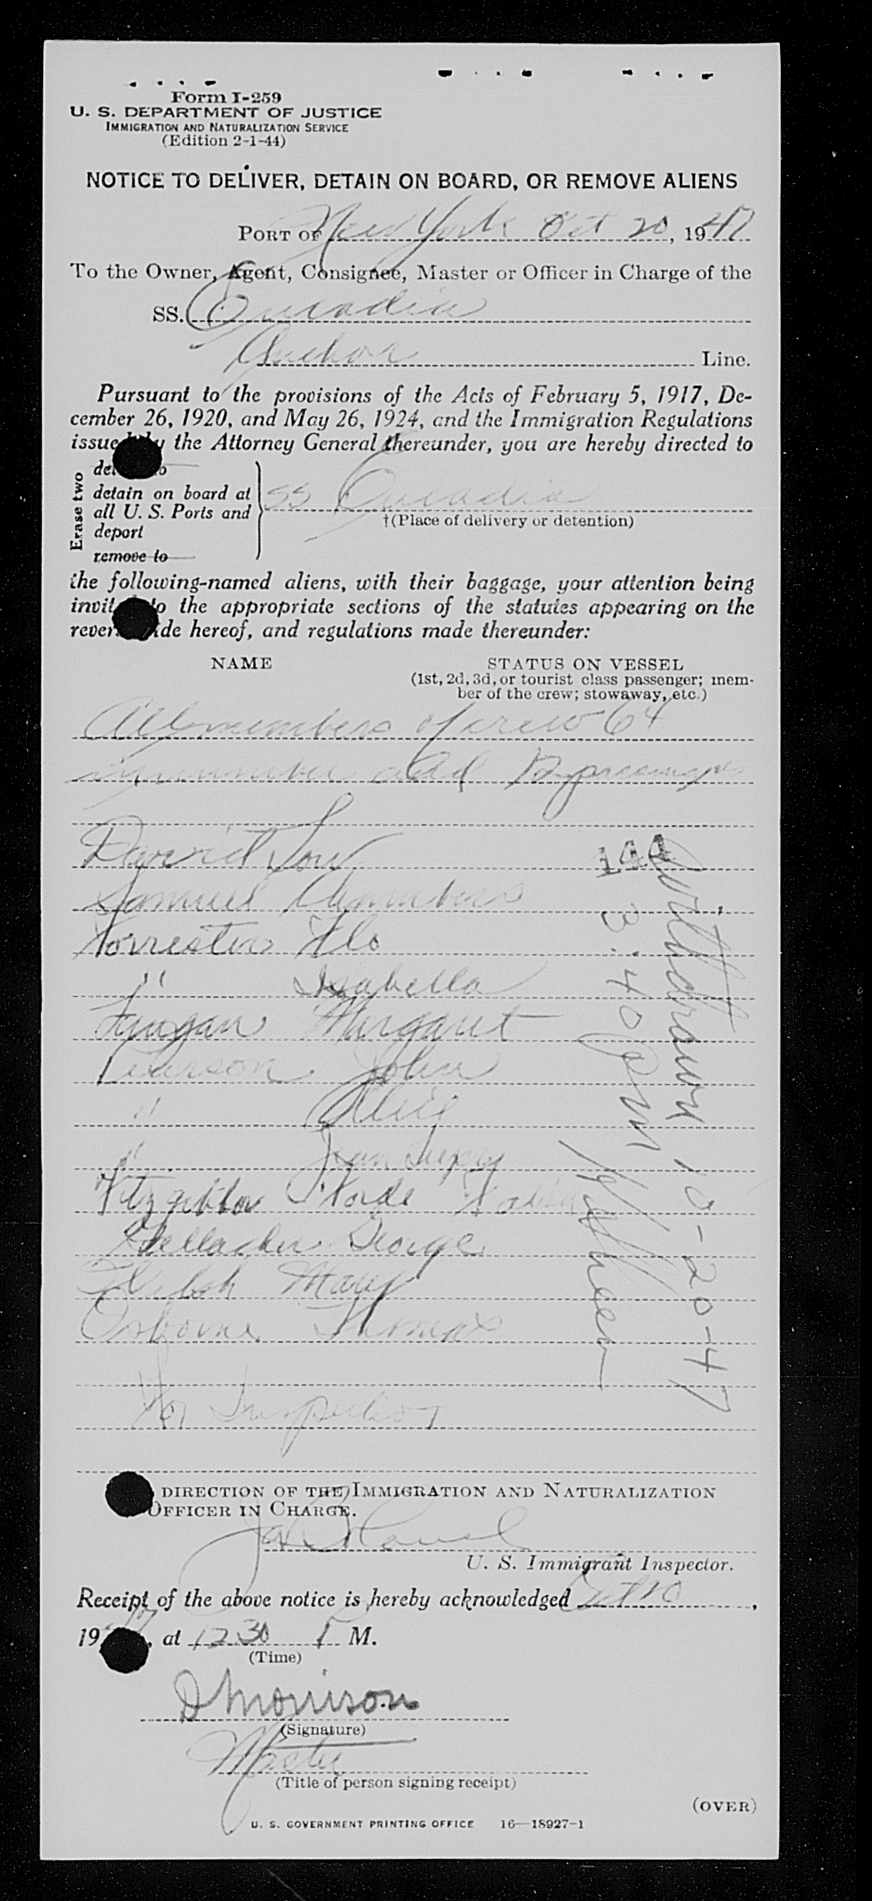 Form I-259
U. S. DEPARTMENT OF JUSTICE
IMMIGRATION AND NATURALIZATION SERVICE
(Edition 2-1-44)
NOTICE TO DELIVER, DETAIN ON BOARD, OR REMOVE ALIENS
PORT OF New York Oct 20, 1947
To the Owner, Agent, Consignee, Master or Officer in Charge of the
SS.
Anchor Line.
Pursuant to the provisions of the Acts of February 5, 1917, De-
cember 26, 1920, and May 26, 1924, and the Immigration Regulations
issued by the Attorney General thereunder, you are hereby directed to
Erase two
detain on board at
all U. S. Ports and
deport
remove to
SS
†(Place of delivery or detention)
the following-named aliens, with their baggage, your attention being
invited to the appropriate sections of the statutes appearing on the
reverse side hereof, and regulations made thereunder:
NAME STATUS ON VESSEL
(1st, 2d, 3d, or tourist class passenger; mem-
ber of the crew; stowaway, etc.)
All members of crew 64
and 12 passengers
David Low
Samuel
Forrester Flo
" Isabella
Finigan Margaret
Pearson John
"
" Jean
Fitzgibbon
Gallagher George
Mary
Osborne Thomas
For Inspection
144
Withdrawn 10-20-47
3:40 PM
DIRECTION OF THE IMMIGRATION AND NATURALIZATION
OFFICER IN CHARGE.
U. S. Immigrant Inspector.
Receipt of the above notice is hereby acknowledged Oct 20,
1947, at 12 30 P M.
(Time)
D Morrison
(Signature)
Master
(Title of person signing receipt)
(OVER)
U. S. GOVERNMENT PRINTING OFFICE 16—18927-1